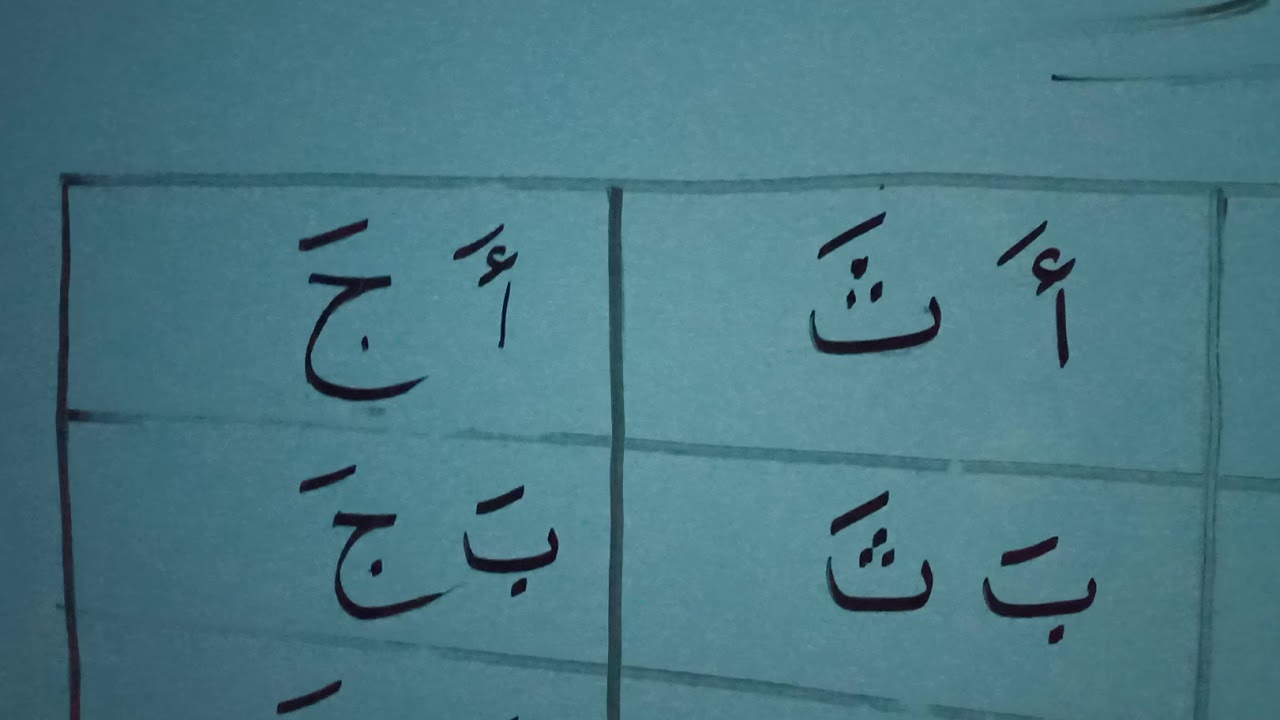 أَ ثَ أَ جَ
بَ ثَ بَ جَ